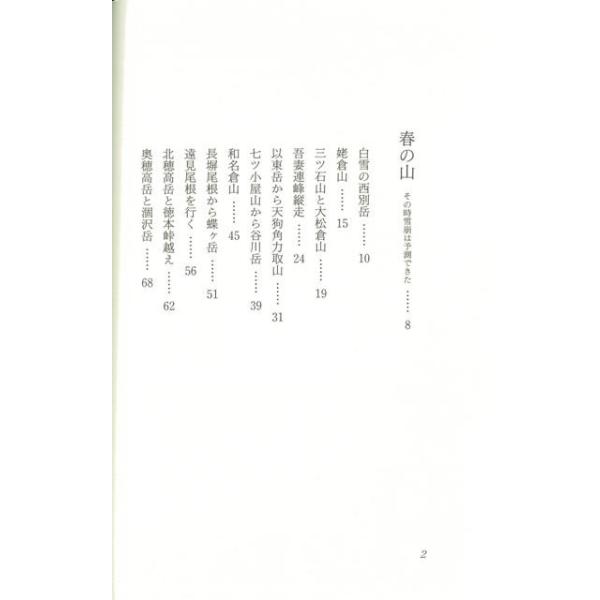 春の山 その時雪崩は予測できた …… 8
白雪の西別岳 …… 10
姥倉山 …… 15
三ツ石山と大松倉山 …… 19
吾妻連峰縦走 …… 24
以東岳から天狗角力取山 …… 31
七ツ小屋山から谷川岳 …… 39
和名倉山 …… 45
長塀尾根から蝶ヶ岳 …… 51
遠見尾根を行く …… 56
北穂高岳と徳本峠越え …… 62
奥穂高岳と涸沢岳 …… 68
2